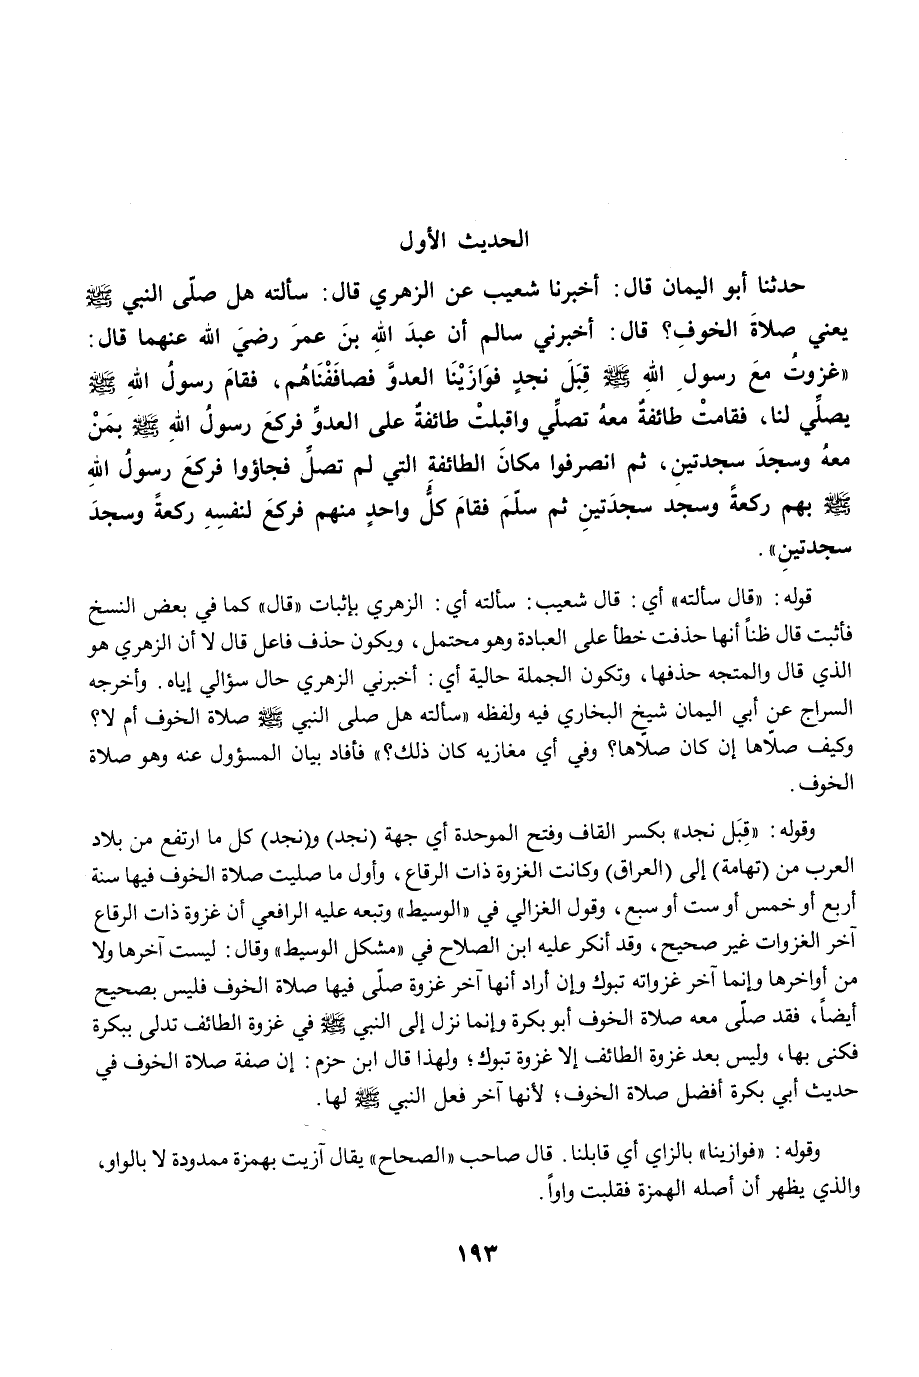 الحديث الأول
حدثنا أبو اليمان قال: أخبرنا شعيب عن الزهري قال: سألته هل صلّى النبي ﷺ
يعني صلاةَ الخوف؟ قال: أخبرني سالم أن عبدَ اللهِ بنَ عمرَ رضيَ الله عنهما قال:
«غزوتُ معَ رسولِ اللهِ ﷺ قِبَلَ نجدٍ فوَازَيْنَا العدوَّ فصافَفْنَاهُم، فقامَ رسولُ اللهِ ﷺ
يصلِّي لنا، فقامتْ طائفةٌ معهُ تصلِّي واقبلتْ طائفةٌ على العدوِّ فركعَ رسولُ اللهِ ﷺ بمَنْ
معهُ وسجدَ سجدتينِ، ثم انصرفوا مكانَ الطائفةِ التي لم تصلِّ فجاؤوا فركعَ رسولُ اللهِ
ﷺ بهم ركعةً وسجد سجدَتينِ ثم سلّمَ فقامَ كلُّ واحدٍ منهم فركعَ لنفسِهِ ركعةً وسجدَ
سجدتينِ».
قوله: «قال سألته» أي: قال شعيب: سألته أي: الزهري بإثبات «قال» كما في بعض النسخ
فأثبت قال ظناً أنها حذفت خطأ على العبادة وهو محتمل، ويكون حذف فاعل قال لا أن الزهري هو
الذي قال والمتجه حذفها، وتكون الجملة حالية أي: أخبرني الزهري حال سؤالي إياه. وأخرجه
السراج عن أبي اليمان شيخ البخاري فيه ولفظه «سألته هل صلى النبي ﷺ صلاة الخوف أم لا؟
وكيف صلّاها إن كان صلّاها؟ وفي أي مغازيه كان ذلك؟» فأفاد بيان المسؤول عنه وهو صلاة
الخوف.
وقوله: «قِبَل نجد» بكسر القاف وفتح الموحدة أي جهة (نجد) و(نجد) كل ما ارتفع من بلاد
العرب من (تهامة) إلى (العراق) وكانت الغزوة ذات الرقاع، وأول ما صليت صلاة الخوف فيها سنة
أربع أو خمس أو ست أو سبع، وقول الغزالي في «الوسيط» وتبعه عليه الرافعي أن غزوة ذات الرقاع
آخر الغزوات غير صحيح، وقد أنكر عليه ابن الصلاح في «مشكل الوسيط» وقال: ليست آخرها ولا
من أواخرها وإنما آخر غزواته تبوك وإن أراد أنها آخر غزوة صلّى فيها صلاة الخوف فليس بصحيح
أيضاً، فقد صلّى معه صلاة الخوف أبو بكرة وإنما نزل إلى النبي ﷺ في غزوة الطائف تدلى ببكرة
فكنى بها، وليس بعد غزوة الطائف إلا غزوة تبوك؛ ولهذا قال ابن حزم: إن صفة صلاة الخوف في
حديث أبي بكرة أفضل صلاة الخوف؛ لأنها آخر فعل النبي ﷺ لها.
وقوله: «فوازينا» بالزاي أي قابلنا. قال صاحب «الصحاح» يقال آزيت بهمزة ممدودة لا بالواو،
والذي يظهر أن أصله الهمزة فقلبت واواً.
١٩٣